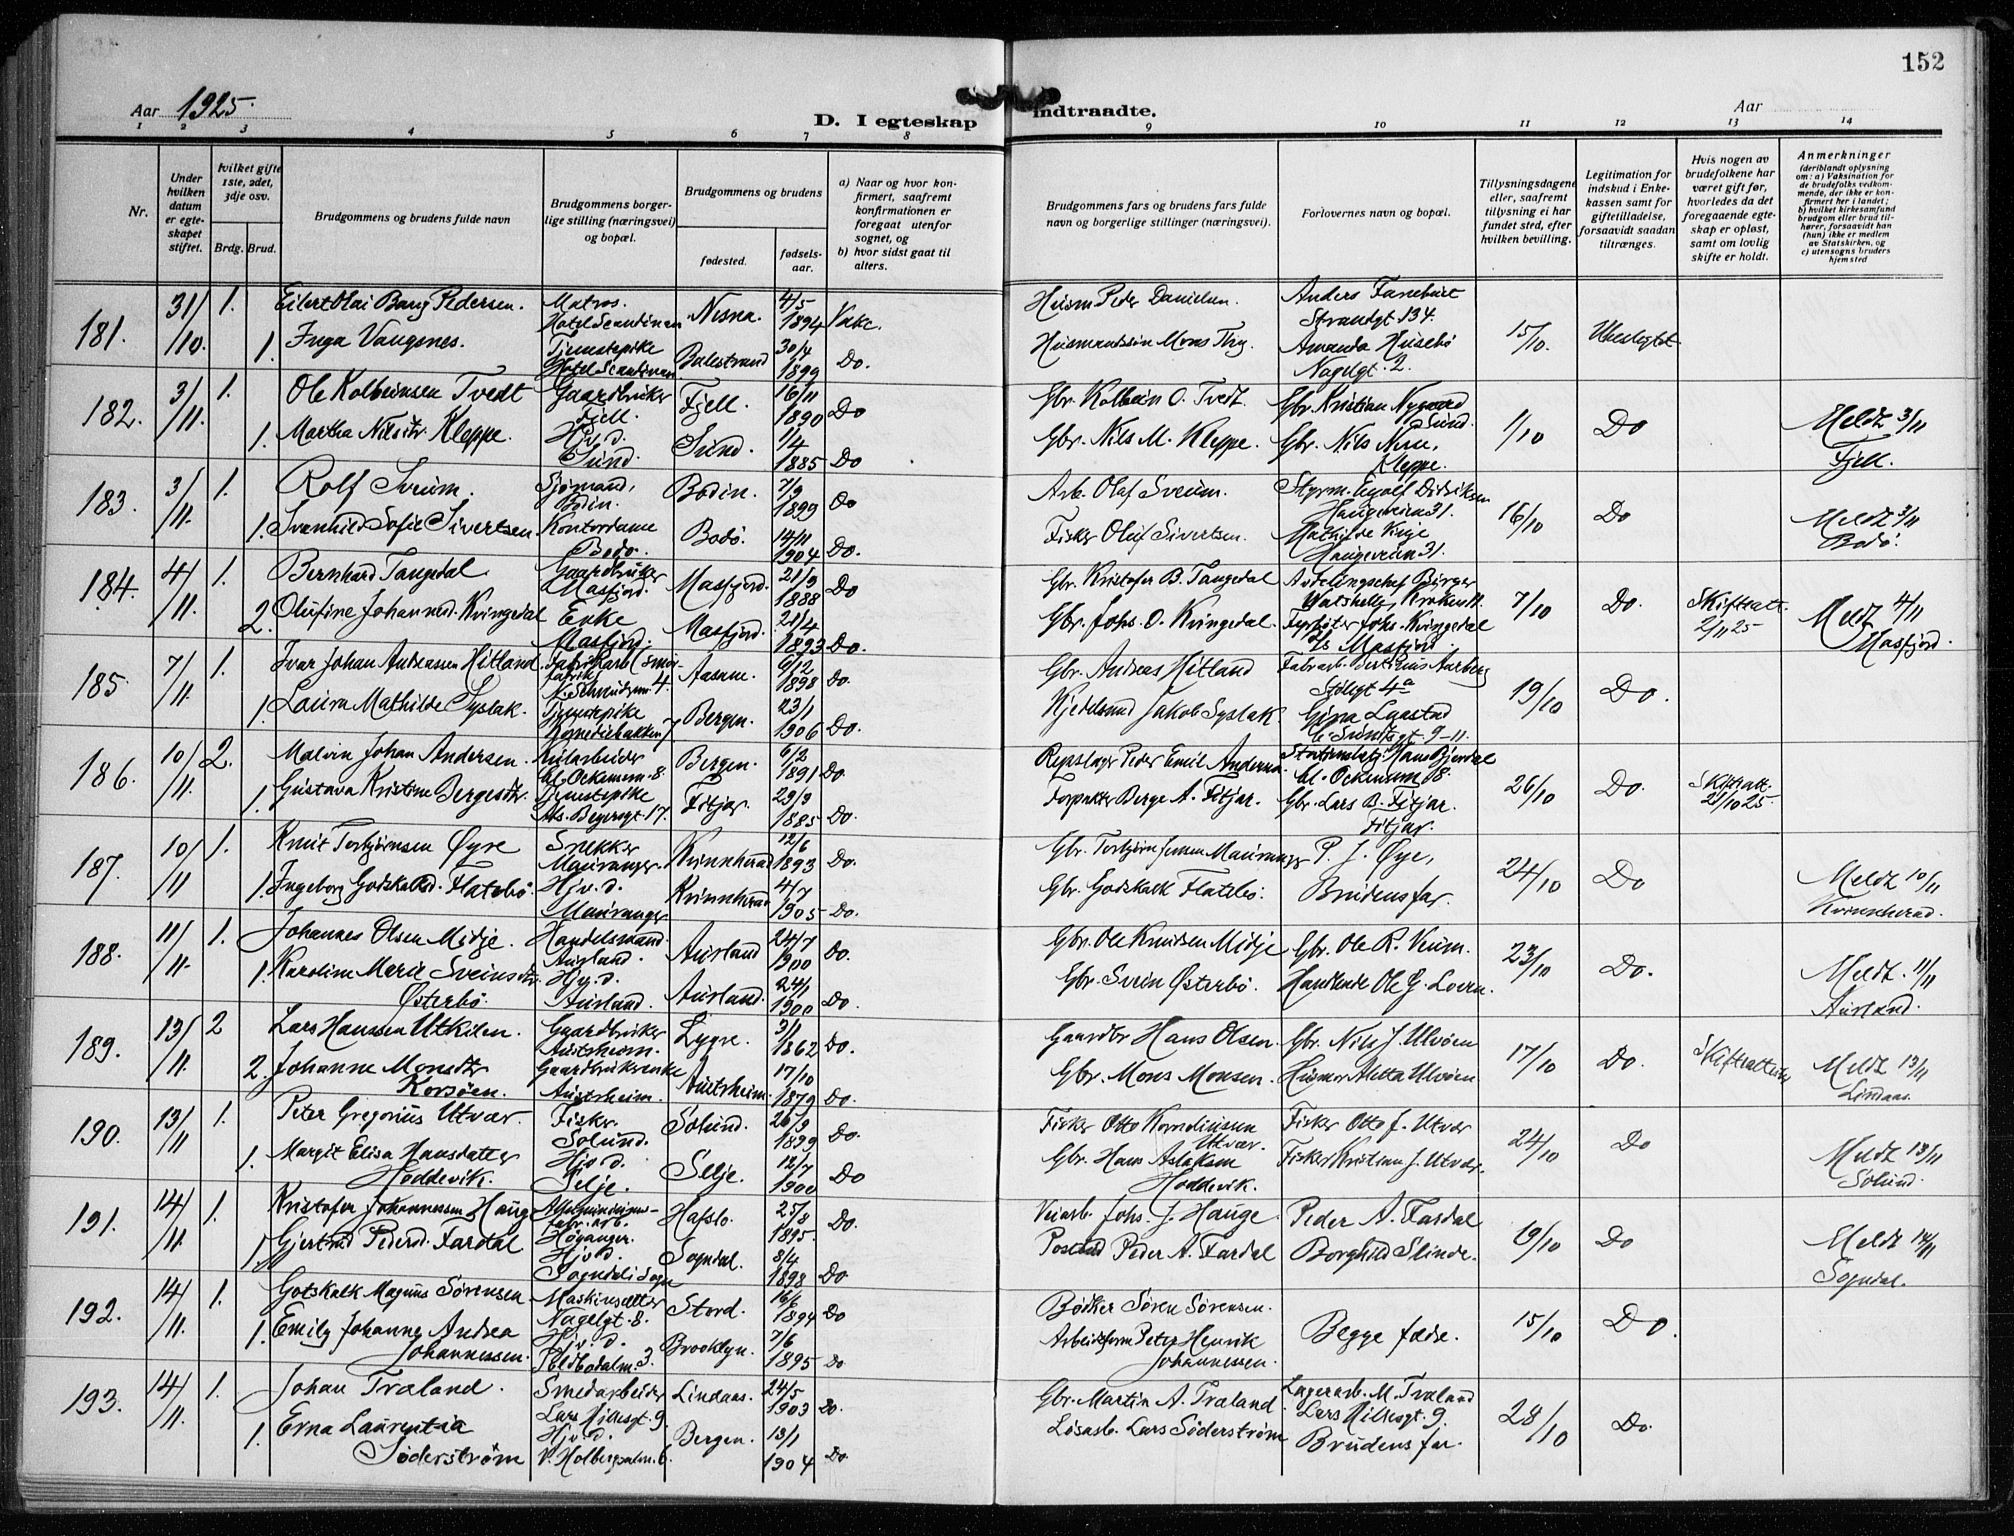 152
Aar 1925.
D. I egteskap indtraadte.
Aar
1 2 3 4 5 6 7 8 9 10 11 12 13 14
Nr.
Under hvilken datum er egteskapet stiftet.
hvilket gifte 1ste, 2det, 3dje osv.
Brdg. Brud.
Brudgommens og brudens fulde navn
Brudgommens borgerlige stilling (næringsvei) og bopæl.
Brudgommens og brudens
fødested.
fødselsaar.
a) Naar og hvor konfirmert, saafremt konfirmationen er foregaat utenfor sognet, og
b) hvor sidst gaat til alters.
Brudgommens fars og brudens fars fulde navn og borgerlige stillinger (næringsvei).
Forlovernes navn og bopæl.
Tillysningsdagene eller, saafremt tillysning ei har fundet sted, efter hvilken bevilling.
Legitimation for indskud i Enkekassen samt for giftetilladelse, forsaavidt saadan tiltrænges.
Hvis nogen av brudefolkene har været gift før, hvorledes da det foregaaende egteskap er opløst, samt om lovlig skifte er holdt.
Anmerkninger (deriblandt oplysning om: a) Vaksination for de brudefolks vedkommende, der ikke er konfirmert her i landet; b) hvilket kirkesamfund brudgom eller brud tilhører, forsaavidt han (hun) ikke er medlem av Statskirken, og c) utensogns bruders hjemsted
181. 31/10. 1. Eilert Olai Bang Pedersen. Matros. Hotel Scandinav Nesna. 4/5 1894 Husm Peder Danielsen. Anders Fanebust Strandgt. 134. 15/10. Ubeslegtet
1. Inga Vangsnes. Tjenestepike Hotel Scandinav Balestrand 30/4 1899 Do. Amanda Husebö Nagelgt. 2.
182. 3/11. 1. Ole Kolbeinsen Tvedt Gaardbruker Fjell. Fjell. 16/11 1890 Do Gbr. Kolbein O. Tvedt Gbr. Kristian Nygaard Sund. 1/10 Do Meldt 3/11 Fjell.
1. Martha Nilsdtr. Kleppe. Hjv. d. Sund. Sund. 1/4 1885 Do Gbr. Nils M. Kleppe. Gbr. Nils Kleppe.
183. 3/11. 1. Rolf Sveum. Sjømand, Bodin. Bodin. 7/9 1899 Do Arb. Olaf Sveum. Styrm. Eyolf Didriksen Haugeveien 31. 16/10 Do Meldt 3/11 Bodö.
1. Svanhild Sofie Sivertsen Kontordame Bodö. Bodö. 14/11 1904 Do. Fisker Oluf Sivertsen. Mathilde Haugeveien 31.
184. 4/11. 1. Bernhard Tangedal Gaardbruker Masfjord. Masfjord. 21/9 1888 Do Gbr. Kristofer B. Tangedal Avdelingschef Birger 7/10 Do. Skifteatt. 2/11 25 Meldt 4/11 Masfjord.
2. Olufine Johannesd. Kvingedal Enke Masfjord. Masfjord. 21/4 1893 Do. Gbr. Johs. O. Kvingedal. Fyrböter Johs. Kvingedal Masfjord
185. 7/11. 1. Ivar Johan Andreassen Hitland Aasane. 6/12 1898 Do. Gbr. Andreas Hitland Fabr.arb. Stölegt 4a 19/10 Do.
1. Laura Mathilde Systak. Tjenestepike Komediebakken 7 Bergen. 23/1 1906 Do. Kjedelsmed Jakob Systak. Gina Lyastad 9-11.
186. 10/11. 2. Malvin Johan Andersen. Kularbeider 8. Bergen. 6/2 1891 Do. Repslager Peder Emil Andersen. Hans Bjordal 26/10 Do. Skifteatt. 21/10 25.
1. Gustava Kristine Bergesdtr. Tjenestepike 17. Fitjar. 29/9 1885 Do. Forpakter Berge A. Fitjar. Gbr. Lars B. Fitjar. Fitjar.
187. 10/11 1. Knut Torbjörnsen Øyre Snekker Mauranger. Kvinnherad 12/6 1893 Do. Gbr. Torbjörn Jensen Mauranger P. J. Øye, 24/10 Do Meldt 10/11 Kvinnherad.
1. Ingeborg Godskalksd. Flatebö Hjv. d. Mauranger Kvinnherad 4/7 1905 Do. Gbr. Godskalk Flatebö. Brudens far.
188. 11/11. 1. Johannes Olsen Midje. Handelsmand Aurland. Aurland 24/7 1900 Do. Gbr. Ole Knudsen Midje Gbr. Ole R. Veum. 23/10 Do. Meldt. 11/11 Aurland.
1. Karoline Marie Sveinsdtr. Østerbö. Hjv. d. Aurland. Aurland. 24/1 1900 Do. Gbr. Svein Østerbö. Handlende Ole G. Loven.
189. 13/11. 2 Lars Hanssen Utkilen. Gaardbruker Austrheim. Lygre. 3/1 1862 Do. Gaardbr Hans Olsen. Gbr. Nils J. Ulvöen 17/10 Do. Skifteattest Meldt 13/11 Lindaas.
2. Johanne Monsdtr Korsöen. Gaardbrukerenke Austrheim. Austrheim. 17/10 1879 Do. Gbr. Mons Monsen. Husmor Aletta Ulvöen
190. 13/11 1. Peter Gregorius Utvær. Fisker Solund. Solund. 26/9 1899 Do. Fisker Otto Korneliussen Utvær. Fisker Otto J. Utvær 24/10 Do Meldt 13/11 Solund.
1. Margit Elisa Hansdatter Hoddevik. Hjv d. Selje. Selje. 12/7 1900 Do Gbr. Hans Aslaksen Hoddevik. Fisker Kristian J. Utvær.
191. 14/11. 1. Kristofer Johannessen Hauge fabr. arb. Höyanger. Hafslo. 25/8 1895. Do. Veiarb. Johs. J. Hauge. Peder A. Fardal 19/10 Do Meldt 14/11 Sogndal.
1. Gjertrud Pedersd. Fardal Hjv d. Sogndal i Sogn Sogndal. 8/4 1898 Do Peder A. Fardal Borghild Slinde.
192. 14/11. 1. Gotskalk Magnus Sørensen Maskinsetter Nagelgt. 8. Stord. 16/6 1894 Do Bödker Sören Sörensen. Begge fædre. 15/10 Do.
1. Emily Johanne Andrea Johannessen. Hjv. d. 3. Brooklyn. 7/6 1895 Do Arbeidsform Peter Henrik Johannessen.
193. 14/11. 1. Johan Træland. Smedarbeider Lars Hillesgt. 9. Lindaas. 24/5 1903 Do. Gbr. Martin A. Træland Lagerarb. M. Træland Lars Hillesgt. 9. 28/10 Do.
1. Erna Laurentia Söderström Hjv. d. V. Holbergsalm. 6. Bergen. 13/1 1904 Do. Lösarb. Lars Söderström Brudens far.